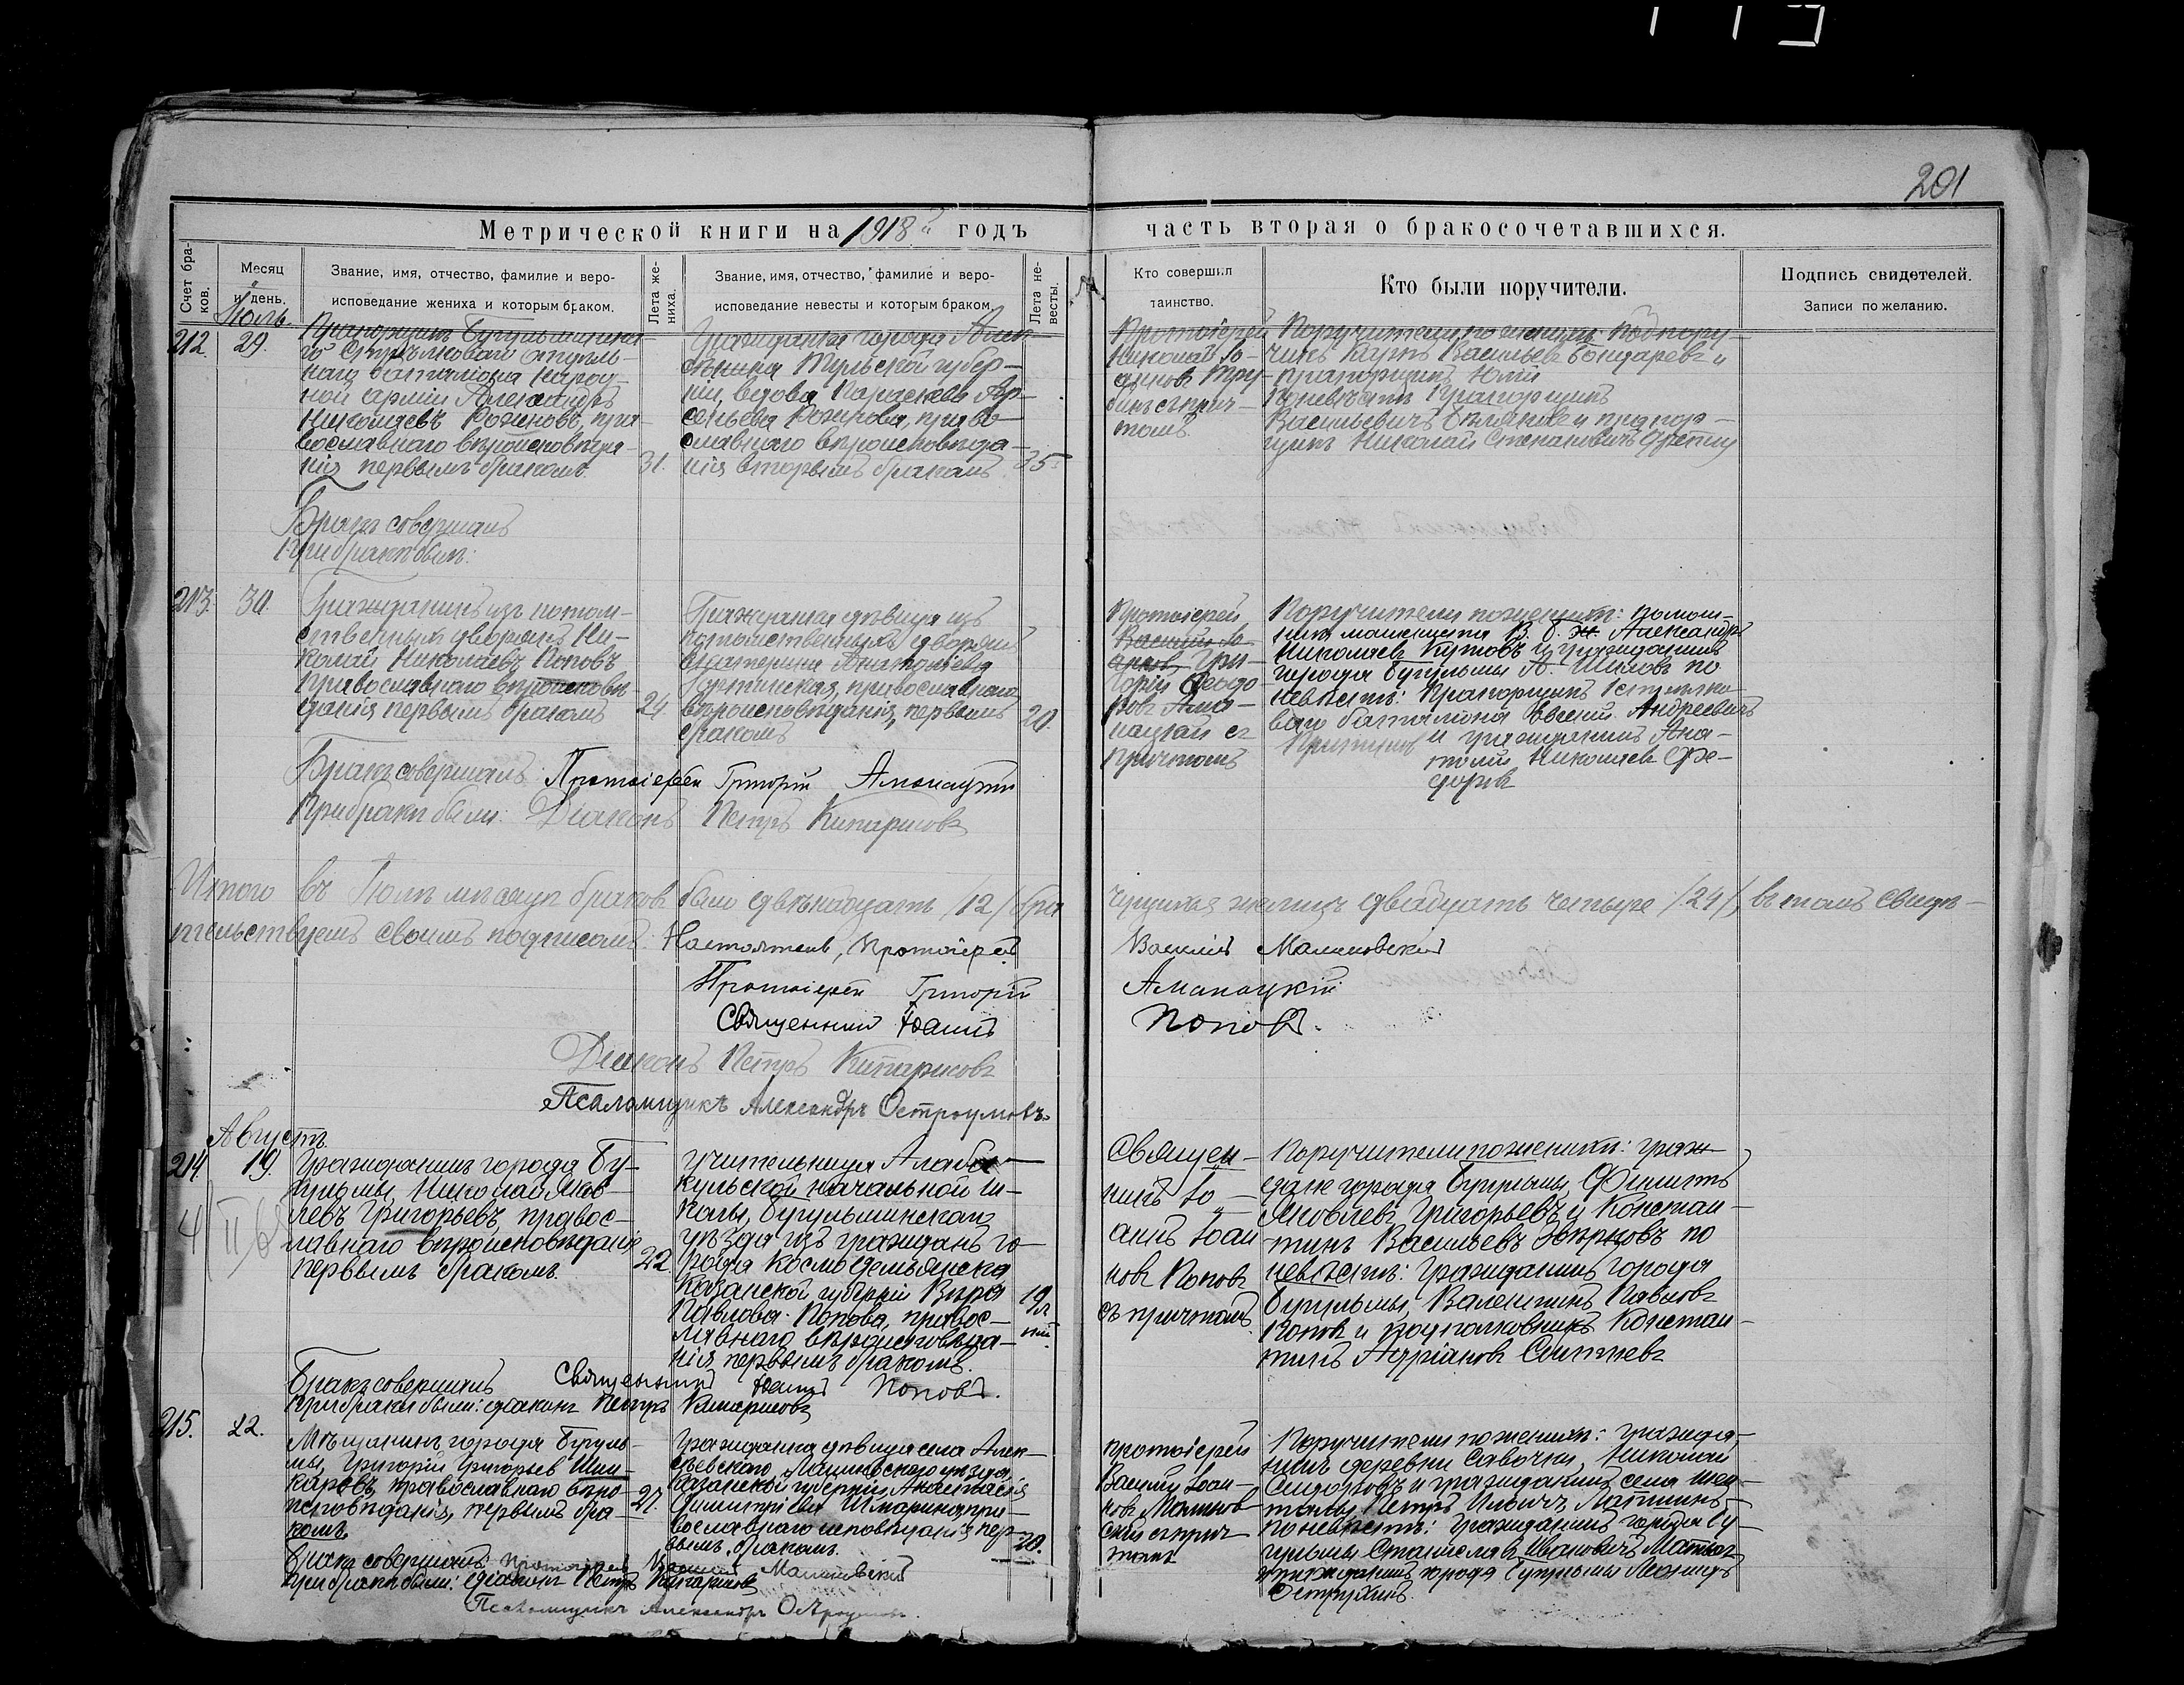 201
Метрической книги на 1918й годъ
часть вторая о бракосочетавшихся.
Счет бра-
ков.
Месяц
и день.
Звание, имя, отчество, фамилие и веро-
исповедание жениха и которым браком.
Лета же-
ниха.
Звание, имя, отчество, фамилие и веро-
исповедание невесты и которым браком.
Лета не-
весты.
Кто совершил
таинство.
Кто были поручители.
Подпись свидетелей.
Записи по желанию.
Июль.
212.
29.
Прапорщикъ Бугульминска-
го Стрѣлковаго отдѣль-
наго баталiона Народ-
ной армiи Александръ
Николаевъ Рожновъ, пра-
вославнаго вѣроисповѣда-
нiя первымъ бракомъ.
31.
Гражданка города Алек-
сѣнска Тульской губер-
нiи, вдова Параскева Ар-
сеньева, правo-
славнаго вѣроисповѣда-
нiя вторымъ бракомъ
35.
Протоiерей
Николай Iо-
анновъ
съ прич-
томъ.
Поручители по женихѣ: Подпору-
чикъ Васильевъ Бондаревъ и
прапорщикъ
По невѣстѣ Прапорщикъ
Васильевичъ и прапор-
щикъ Николай Степановичъ
Бракъ совершалъ
При бракѣ были:
213.
30.
Гражданинъ изъ потом-
ственныхъ дворянъ Ни-
колай Николаевъ Поповъ
православнаго вѣроисповѣ-
данiя первымъ бракомъ
24.
Гражданка дѣвица изъ
потомственныхъ дворянъ
Екатерина Анатолiева
православнаго
вѣроисповѣданiя, первымъ
бракомъ
20.
Протоiерей
Василiй Iо-
анновъ Гри-
горiй Феодо-
ровъ Ама-
нацкiй съ
причтомъ
Поручители по женихѣ: помощ-
никъ машиниста В. Б. ж. Александръ
Николаевъ Кутовъ и гражданинъ
города Бугульмы А. Шиловъ по
невѣстѣ: Прапорщикъ 1 стрѣлко-
ваго баталiона Евгенiй Андреевичъ
и гражданинъ Ана-
толiй Николаевъ Фе-
доровъ
Бракъ совершалъ: Протоiерей Григорiй Аманацкiй
При бракѣ были: Дiаконъ Петръ Кипарисовъ
Итого въ Iюлѣ мѣсяцѣ браковъ было двѣнадцать /12/ бра
чущихся лицъ двадцать четыре /24/, въ томъ свидѣ-
тельствуемъ своимъ подписомъ: Настоятель, Протоiерей
Василiй Малиновскiй
Протоiерей Григорiй Аманацкiй
Священникъ Iоаннъ Поповъ.
Дiаконъ Петръ Кипарисовъ
Псаломщикъ Александръ Остроумовъ.
Августъ.
214.
19.
Гражданинъ города Бу-
гульмы, Николай Яков-
левъ Григорьевъ, правос-
лавнаго вѣроисповѣданiя
первымъ бракомъ.
22.
Учительница Алаба-
кульской начальной ш-
колы, Бугульминскаго
уѣзда изъ гражданъ го-
рода Космодемьянска
Казанской губернiи Вѣра
Павлова Попова, правос-
лавнаго вѣроисповѣда-
нiя первымъ бракомъ.
19
Священ-
никъ Iо-
аннъ Iоан
новъ Поповъ
съ причтомъ.
Поручители по женихѣ: граж-
дане города Бугульмы, Филиппъ
Яковлевъ Григорьевъ и Констан-
тинъ Васильевъ по
невѣстѣ: гражданинъ города
Бугульмы, Валентинъ Павловъ
Поповъ и подполковникъ Констан-
тинъ Адрiановъ
Бракъ совершилъ Священникъ Iоаннъ Поповъ.
При бракѣ были: дiаконъ Петръ Кипарисовъ
215.
22.
Мѣщанинъ города Бугуль-
мы, Григорiй Григорьевъ Шин-
каревъ, православнаго вѣро-
исповѣданiя, первымъ бра-
комъ.
21.
Гражданка дѣвица села Алек-
сѣевскаго Лаишевскаго уѣзда,
Казанской губернiи, Анастасiя
Димитрiева Шмарина, пра-
вославнаго исповѣданiя, пер-
вымъ бракомъ.
20.
протоiерей
Василiй Iоан-
новъ Малинов-
скiй съ прич-
томъ
Поручители по женихѣ: гражда-
нинъ деревни Савочки, Николай
Сидоровъ и гражданинъ села
Петръ Ильичъ Лапшинъ
по невѣстѣ: гражданинъ города Бу-
гульмы Станиславъ Ивановичъ
гражданинъ города Бугульмы Леонидъ
Остряхинъ.
Бракъ совершалъ: Протоiерей Василiй Малиновскiй
При бракѣ были: дiаконъ Петръ Кипарисовъ
Псаломщикъ Александръ Остроумовъ.